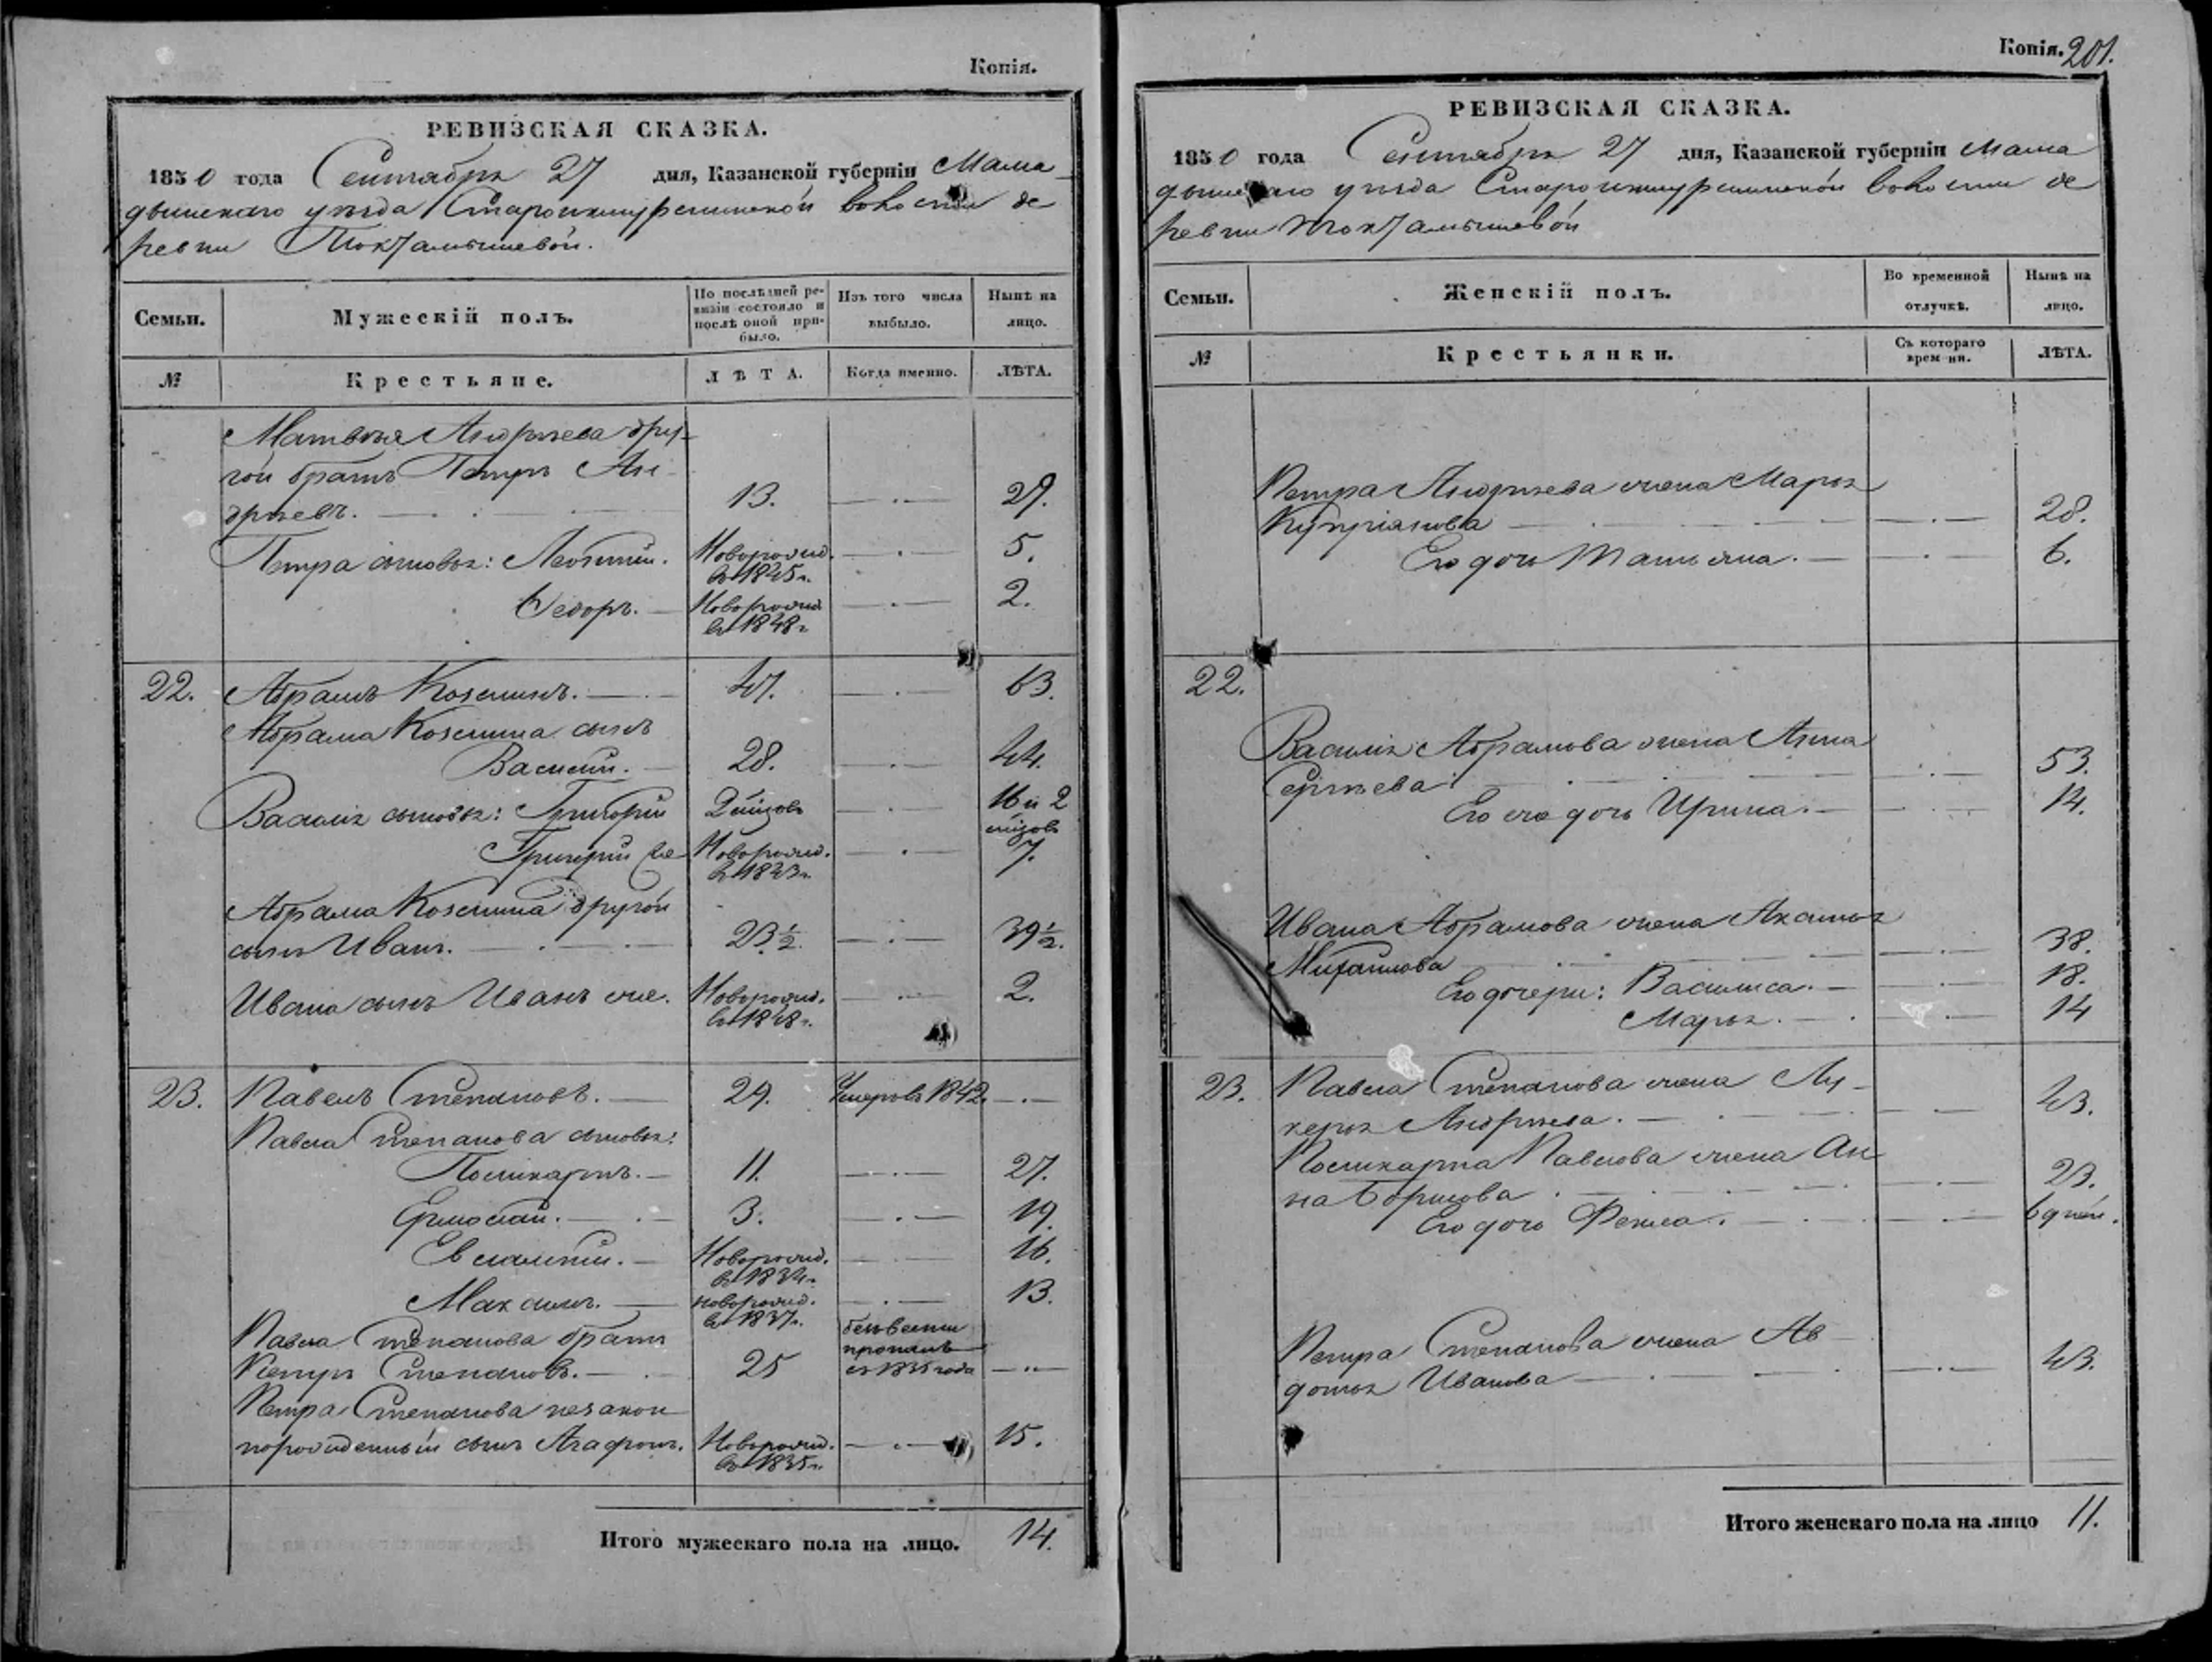 Копія.
РЕВИЗСКАЯ СКАЗКА.
1850 года Сентября 27 дня, Казанской губерніи Мама-
дышскаго уѣзда волости де-
ревни Токталышевой.
Семьи.
Мужескій полъ.
По послѣдней ре-
визіи состояло и
послѣ оной при-
было.
Изъ того числа
выбыло.
Нынѣ на
лицо.
№
Крестьяне.
ЛѢТА.
Когда именно.
ЛѢТА.
Матвѣя Андрѣева дру-
гой братъ Петръ Ан-
дрѣевъ. 13. 29.
Петра сыновья: Леонтій. Новорожд. 5.
въ 1845г.
Ѳедоръ. Новорожд. 2.
въ 1848г.
22. Абрамъ Козминъ. 47. 63.
Абрама Козмина сынъ
Василій. 28. 44.
Василія сыновья: Григорій 16 и 2
Григорій Новорожд. 7.
въ 1843г.
Абрама Козмина другой
сынъ Иванъ. 23½. 39½.
Ивана сынъ Иванъ же. Новорожд. 2.
въ 1848г.
23. Павелъ Степановъ. 29. Умеръ въ 1842.
Павла Степанова сыновья:
Поликарпъ. 11. 27.
Ермолай. 3. 19.
Евлампій. Новорожд. 16.
въ 1834г.
Максимъ. новорожд. 13.
въ 1837г.
Павла Степанова братъ безъ вести
пропалъ
Петръ Степановъ. 25 съ 1835 года
Петра Степанова незакон
норожденный сынъ Агафонъ. Новорожд. 15.
въ 1835г.
Итого мужескаго пола на лицо. 14.
Копія. 201.
РЕВИЗСКАЯ СКАЗКА.
1850 года Сентября 27 дня, Казанской губерніи Мама
дышскаго уѣзда волости де
ревни Токталышевой
Семьи.
Женскій полъ.
Во временной
отлучкѣ.
Нынѣ на
лицо.
№
Крестьянки.
Съ котораго
времени.
ЛѢТА.
Петра Андрѣева жена Марья
Купріянова 28.
Его дочь Татьяна. 6.
22.
Василія Абрамова жена Анна
Сергѣева 53.
Его же дочь Ирина. 14.
Ивана Абрамова жена Акулина
Михайлова 38.
Его дочери: Василиса. 18.
Марья. 14
23. Павла Степанова жена Лу-
керья Андрѣева. 43.
Поликарпа Павлова жена Ан
на Борисова 23.
Его дочь Фекла. 6 дней.
Петра Степанова жена Ав-
дотья Иванова 43.
Итого женскаго пола на лицо 11.